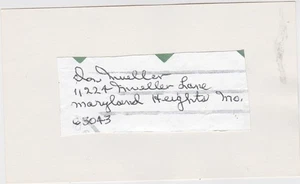 Don Mueller
11224 Mueller Lane
Maryland Heights Mo.
63043